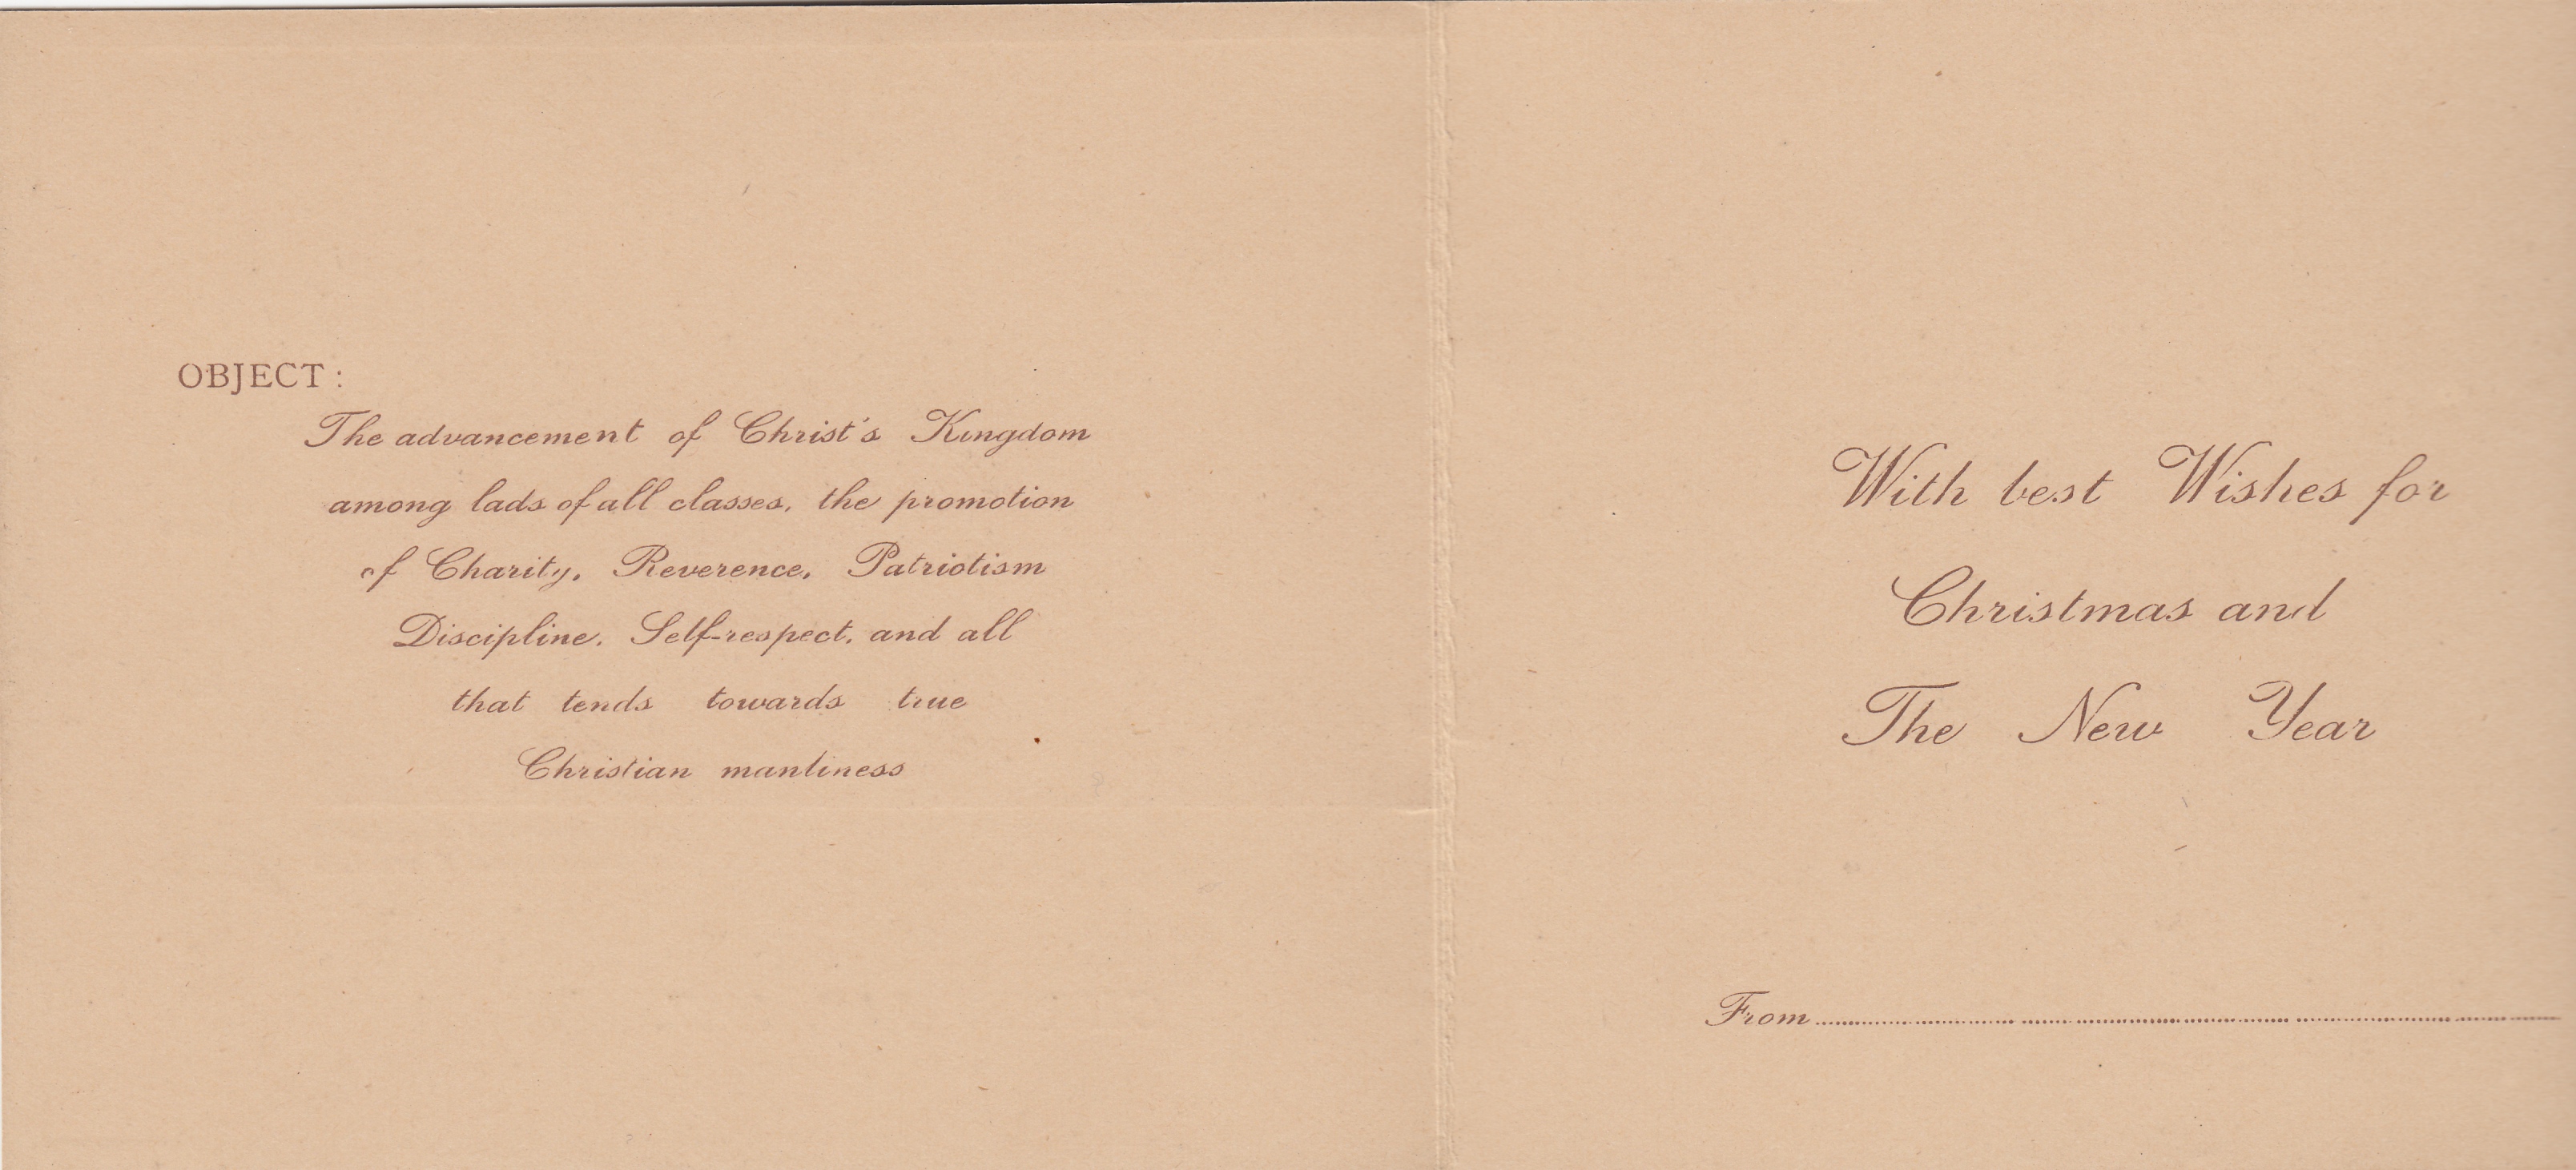 OBJECT :
The advancement of Christ's Kingdom
among lads of all classes, the promotion
of Charity, Reverence, Patriotism
Discipline, Self-respect, and all
that tends towards true
Christian manliness
With best Wishes for
Christmas and
The New Year
From